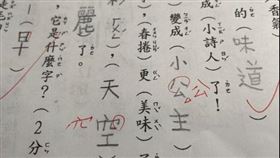 香氣
的味道
變成(小詩人)了!
(小公主
公
,春捲)更(美味
),(天空
麗了。
,它是什麼字?(2分
(早)